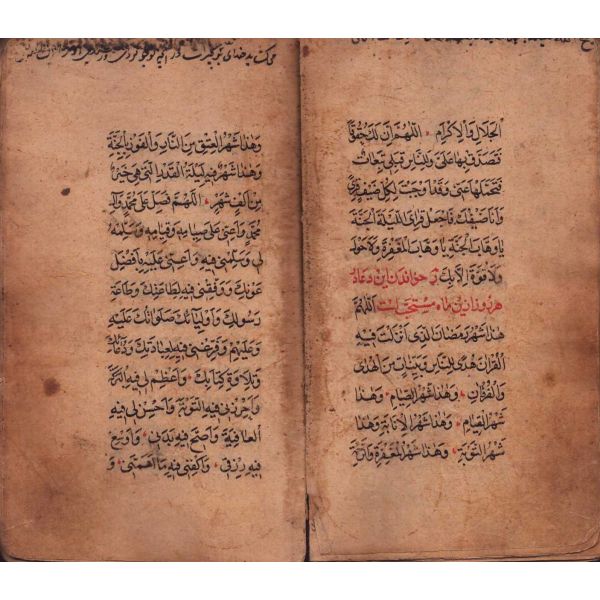 الجلال والاكرام اللهم ان لك حقوقا
فتصدق بها علي وللناس قبلي تبعات
فتحملها عني وقد اوجبت لكل ضيف قري
وانا ضيفك فاجعل قراي الليلة الجنة
يا وهاب الجنة يا وهاب المغفرة ولا حول
ولا قوة الا بك و خواندن این دعا در
هر روز از این ماه مستحبات اللهم
هذا شهر رمضان الذي انزلت فيه
القران هدى للناس وبينات من الهدى
والفرقان وهذا شهر الصيام وهذا
شهر القيام وهذا شهر الانابة وهذا
شهر التوبة وهذا شهر المغفرة والرحمة
وهذا شهر العتق من النار والفوز بالجنة
وهذا شهر فيه ليلة القدر التي هي خير
من الف شهر اللهم فصل على محمد وال
محمد واعني على صيامه وقيامه وسلمه
لي وسلمني فيه واعني عليه بافضل
عونك ووفقني فيه لطاعتك وطاعة
رسولك واوليائك صلواتك عليه
وعليهم وفرغني فيه لعبادتك ودعائك
وتلاوة كتابك واعظم لي فيه البركة
واحرز لي فيه التوبة واحسن لي فيه
العافية واصح فيه بدني واوسع
فيه رزقي واكفني فيه ما اهمني و